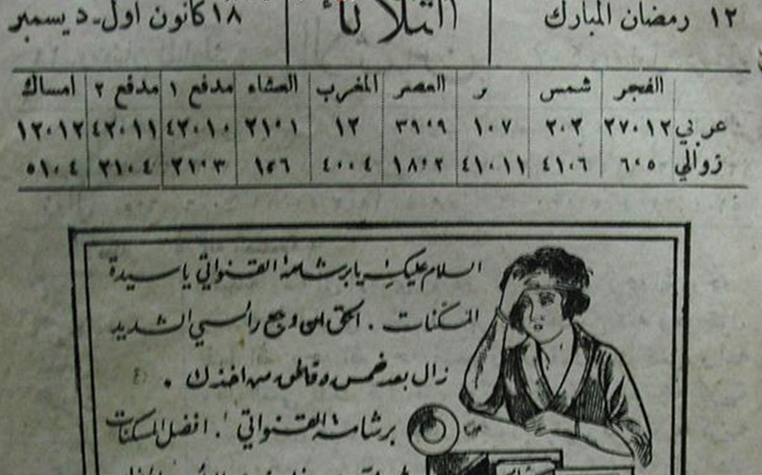 ١٢ رمضان المبارك الثلاثاء ١٨ كانون اول - ديسمبر
الفجر شمس ر العصر المغرب العشاء مدفع ١ مدفع ٢ امساك
عربي ٢٧٠١٢ ٢٠٢ ١٠٧ ٣٩٠٩ ١٢ ٣١٠١ ٤٣٠١٠ ٤٢٠١١ ١٢٠١٢
زوالي ٦٠٥ ٤١٠٦ ٤١٠١١ ١٨٠٢ ٤٠٠٤ ١٥٦ ٣١٠٣ ٣١٠٤ ٥١٠٤
السلام عليك يا برشامة القنواتي يا سيدة
المسكنات . الحق ان وجع رأسي الشديد
زال بعد خمس دقائق من اخذك .
برشامة القنواتي ! . افضل المسكنات